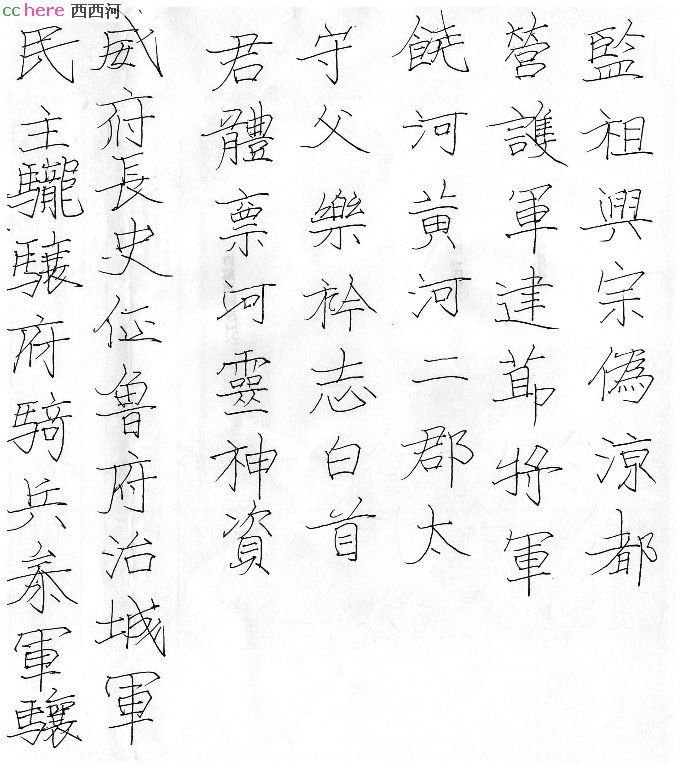 cchere 西西河
監祖興宗偽涼都
營護軍建莭將軍
饒河黃河二郡太
守父樂衿志白首
君體稟河靈神資
威府長史征魯府治城軍
民主䮾驤府騎兵叅軍驤